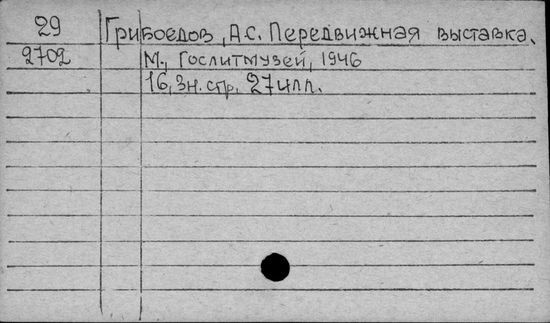 29 Грибоедов, А.С. Передвижная выставка.
2702 М., Гослитмузей, 1946
16, 3н. стр. 27 илл.